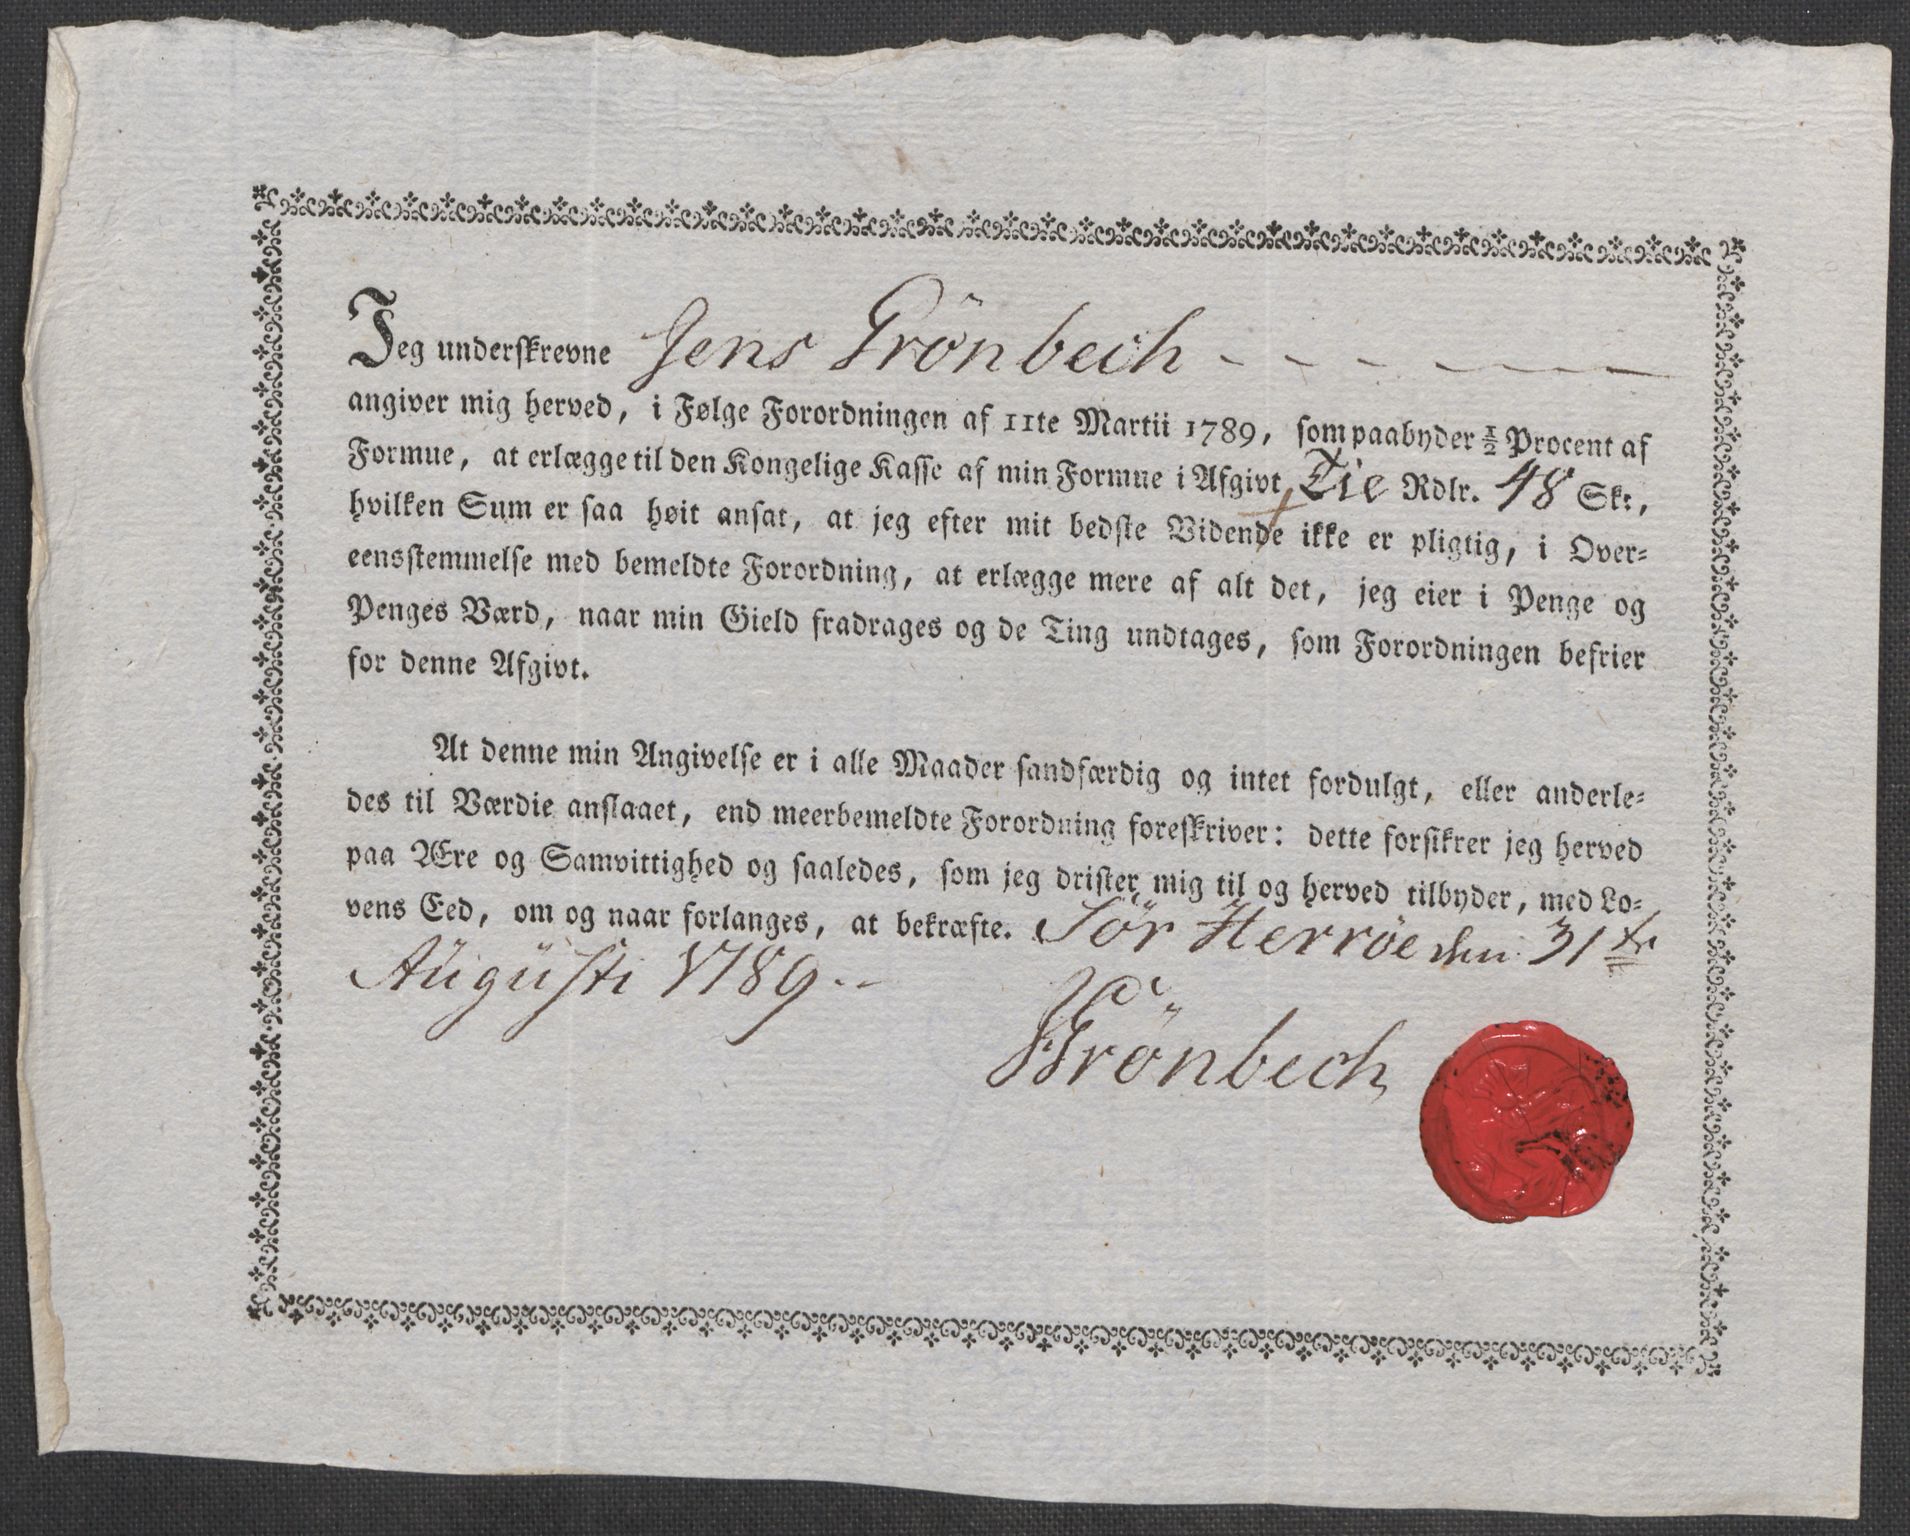 Jeg underskrevne Jens Grönbech - - - - -
angiver mig herved, i Følge Forordningen af 11te Martii 1789, som paabyder ½ Procent af
Formue, at erlægge til den Kongelige Kasse af min Formue i Afgivt Tie Rdlr. 48 Sk:,
hvilken Sum er saa høit ansat, at jeg efter mit bedste Vidende ikke er pligtig, i Over-
eensstemmelse med bemeldte Forordning, at erlægge mere af alt det, jeg eier i Penge og
Penges Værd, naar min Gield fradrages og de Ting undtages, som Forordningen befrier
for denne Afgivt.
At denne min Angivelse er i alle Maader sandfærdig og intet fordulgt, eller anderle-
des til Værdie anslaaet, end meerbemeldte Forordning foreskriver: dette forsikrer jeg herved
paa Ære og Samvittighed og saaledes, som jeg drister mig til og herved tilbyder, med Lo-
vens Eed, om og naar forlanges, at bekræfte. Sör Herröe den 31te
Augusti 1789 --
Grönbech